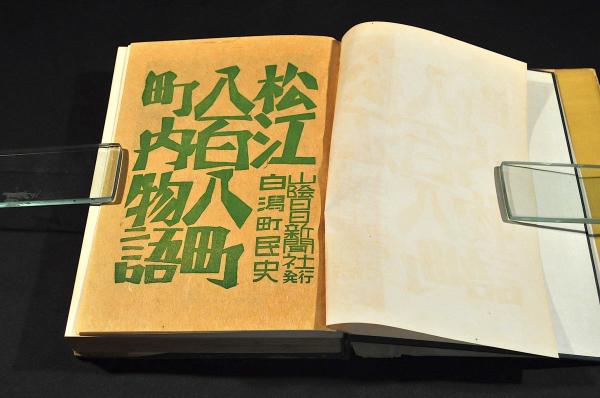 松江
八百八町
町内物語
山陰日日新聞社発行
白潟町民史